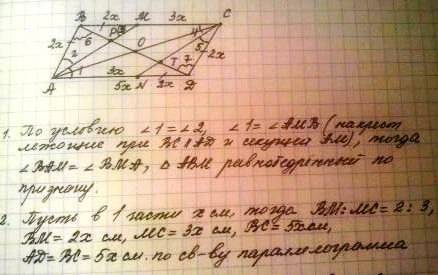 B 2x M 3x C
P 3 4
2x 6 O 5 2x
2 T 7
1 3x
A 5x N 2x D
1. По условию ∠1=∠2, ∠1=∠AMB (накрест
лежащие при BC∥AD и секущей AM), тогда
∠BAM=∠BMA, △ABM равнобедренный по
признаку.
2. Пусть в 1 части x см, тогда BM:MC=2:3,
BM=2x см, MC=3x см, BC=5x см,
AD=BC=5x см. по св-ву параллелограмма